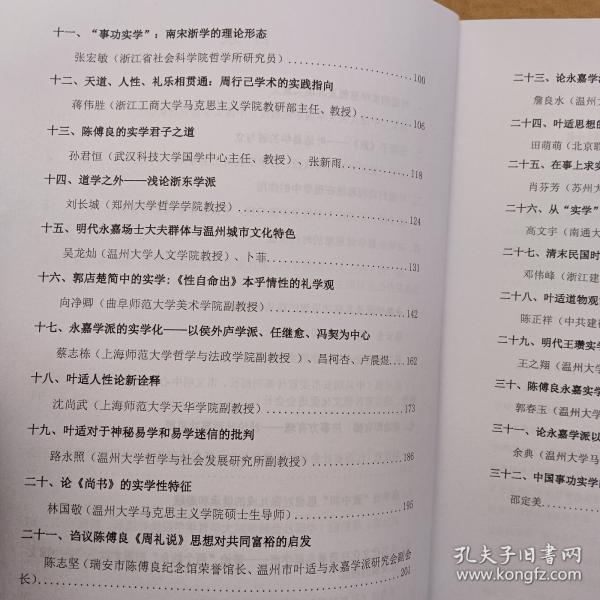 十一、“事功实学”：南宋浙学的理论形态
张宏敏（浙江省社会科学院哲学所研究员）100
十二、天道、人性、礼乐相贯通：周行己学术的实践指向
蒋伟胜（浙江工商大学马克思主义学院教研部主任、教授）106
十三、陈傅良的实学君子之道
孙君恒（武汉科技大学国学中心主任、教授）、张新雨118
十四、道学之外——浅论浙东学派
刘长城（郑州大学哲学学院教授）124
十五、明代永嘉场士大夫群体与温州城市文化特色
吴龙灿（温州大学人文学院教授）、卜菲131
十六、郭店楚简中的实学:《性自命出》本乎情性的礼学观
向净卿（曲阜师范大学美术学院副教授）142
十七、永嘉学派的实学化——以侯外庐学派、任继愈、冯契为中心
蔡志栋（上海师范大学哲学与法政学院副教授）、昌柯杏、卢晨煜162
十八、叶适人性论新诠释
沈尚武（上海师范大学天华学院副教授）173
十九、叶适对于神秘易学和易学迷信的批判
路永照（温州大学哲学与社会发展研究所副教授）186
二十、论《尚书》的实学性特征
林国敬（温州大学马克思主义学院硕士生导师）195
二十一、诌议陈傅良《周礼说》思想对共同富裕的启发
陈志坚（瑞安市陈傅良纪念馆荣誉馆长、温州市叶适与永嘉学派研究会副会
长）201
二十三、论永嘉学
詹良水（温州大
二十四、叶适思想的
田萌萌（北京联
二十五、在事上求实
肖芬芳（苏州大
二十六、从“实学”
高文宇（南通大
二十七、清末民国时
邓伟峰（浙江建
二十八、叶适道物观
陈正祥（中共建德
二十九、明代王瓒实学
王之翔（温州大学
三十、陈傅良永嘉实学
郭春玉（温州大学
三十一、论永嘉学派以
余典（温州大学
三十二、中国事功实学
邵定美
孔夫子旧书网
www.kongfz.com